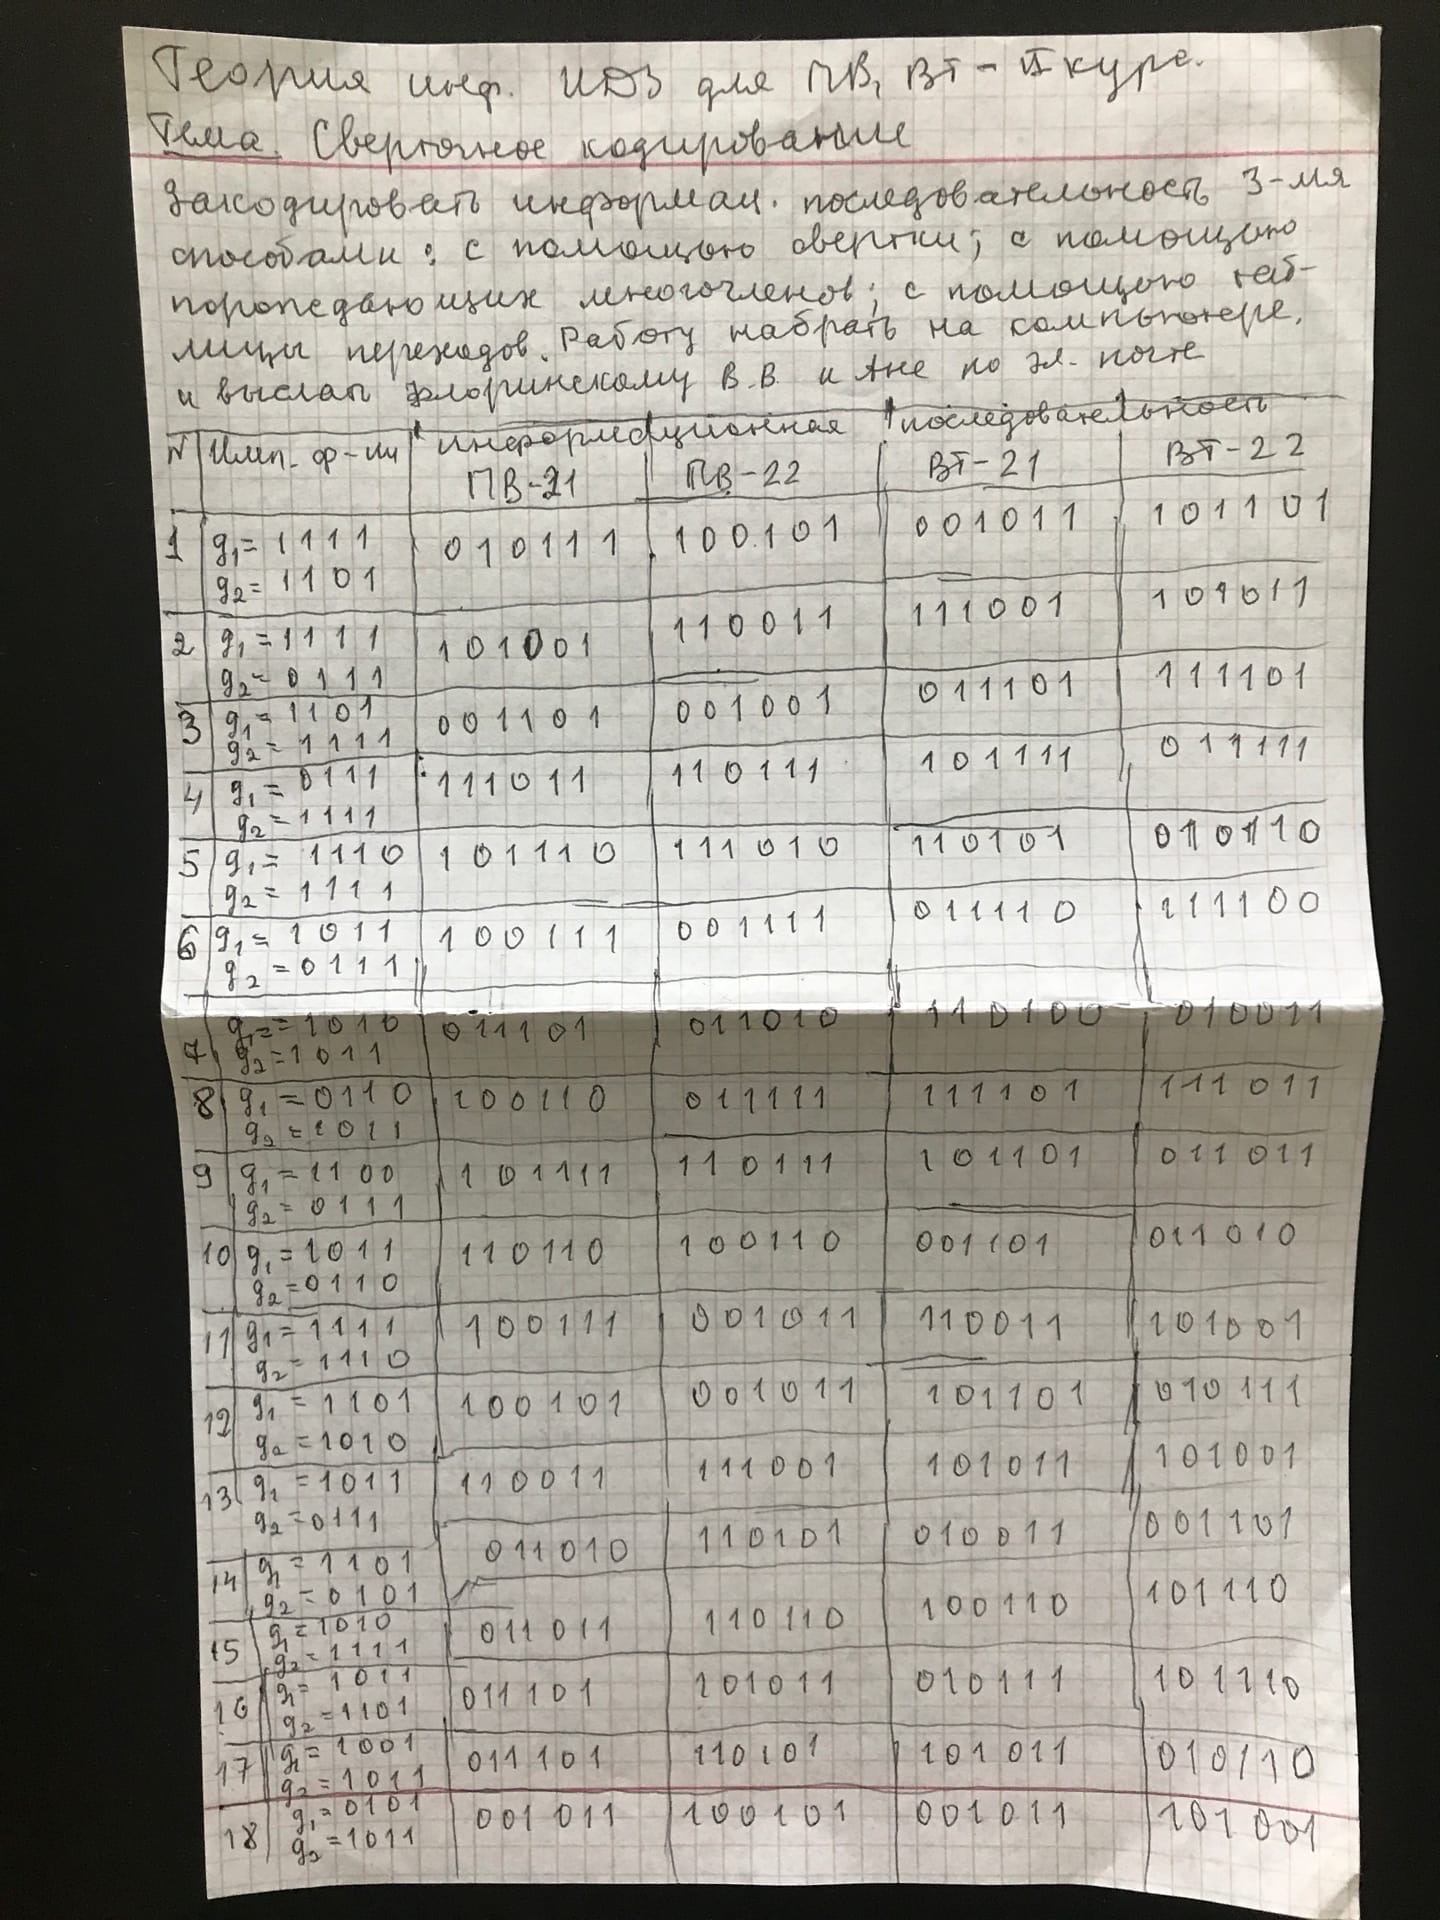 Теория инф. ИДЗ для ПВ, ВТ - II курс.
Тема. Сверточное кодирование
Закодировать информац. последовательность 3-мя
способами: с помощью свертки; с помощью
порождающих многочленов; с помощью таб-
лицы переходов. Работу набрать на компьютере,
и выслать Флоринскому В.В. и Ане по эл. почте
N Имп. ф-ии информационная последовательность
ПВ-21 ПВ-22 ВТ-21 ВТ-22
1 g1=1111 010111 100101 001011 101101
g2=1101
2 g1=1111 101001 110011 111001 101011
g2=0111
3 g1=1101 001101 001001 011101 111101
g2=1111
4 g1=0111 111011 110111 101111 011111
g2=1111
5 g1=1110 101110 111010 110101 010110
g2=1111
6 g1=1011 100111 001111 011110 111100
g2=0111
7 g1=1010 011101 011010 110100 010011
g2=1011
8 g1=0110 100110 011111 111101 111011
g2=1011
9 g1=1100 101111 110111 101101 011011
g2=0111
10 g1=1011 110110 100110 001101 011010
g2=0110
11 g1=1111 100111 001011 110011 101001
g2=1110
12 g1=1101 100101 001011 101101 010111
g2=1010
13 g1=1011 110011 111001 101011 101001
g2=0111
14 g1=1101 011010 110101 010011 001101
g2=0101
15 g1=1010 011011 110110 100110 101110
g2=1111
16 g1=1011 011101 101011 010111 101110
g2=1101
17 g1=1001 011101 110101 101011 010110
g2=1011
18 g1=0101 001011 100101 001011 101001
g2=1011